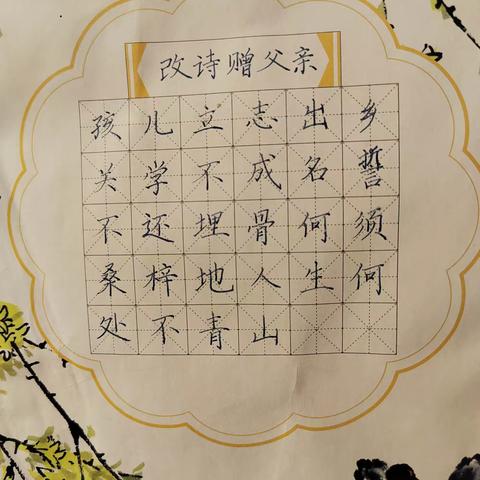 改诗赠父亲
孩儿立志出乡
关学不成名誓
不还埋骨何须
桑梓地人生何
处不青山